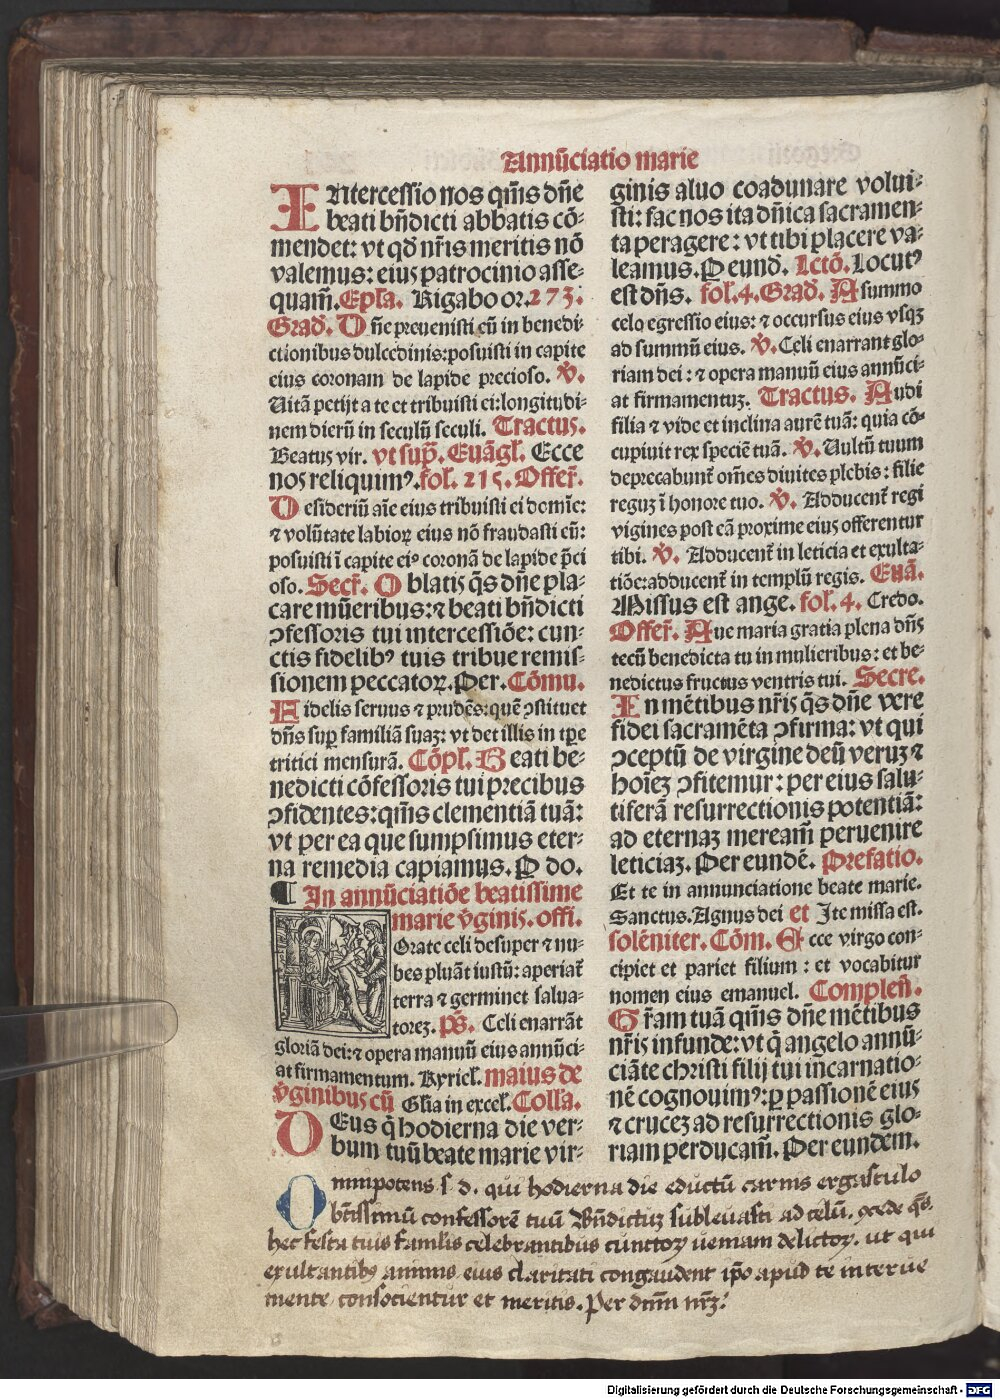 Annūciatio marie
INtercessio nos qm̄s dn̄e
beati bn̄dicti abbatis cō-
mendet: vt qd̄ nr̄is meritis nō
valemus: eius patrocinio asse-
quam̄. Epl̄a. Rigabo or. 273.
Grad̄. Dn̄e preuenisti eū in benedi-
ctionibus dulcedinis: posuisti in capite
eius coronam de lapide precioso. V̄.
Uitā petijt a te et tribuisti ei: longitudi-
nem dierū in seculū seculi. Tractus.
Beatus vir. vt sup̄. Euāgl̄. Ecce
nos reliquimꝰ. fol. 215. Offer̄.
Desideriū aīe eius tribuisti ei domīe:
⁊ volūtate labioꝝ eius nō fraudasti eū:
posuisti ī capite eiꝰ coronā de lapide p̄ci
oso. Secr̄. Oblatis q̄s dn̄e pla-
care mūeribus: ⁊ beati bn̄dicti
ꝯfessoris tui intercessiōe: cun-
ctis fidelibꝰ tuis tribue remis-
sionem peccatoꝝ. Per. Cōmu.
Fidelis seruus ⁊ prudēs: quē ꝯstituet
dn̄s sup̄ familiā suaꝫ: vt det illis in tp̄e
tritici mensurā. Cōpl̄. Beati be-
nedicti cōfessoris tui precibus
ꝯfidentes: qm̄s clementiā tuā:
vt per ea que sumpsimus eter-
na remedia capiamus. P do.
¶ In annūciatiōe beatissime
marie v̄ginis. offi.
Rorate celi desuper ⁊ nu-
bes pluāt iustū: aperiat̄
terra ⁊ germinet salua-
toreꝫ. Ps̄. Celi enarrāt
gloriā dei: ⁊ opera manuū eius annūci-
at firmamentum. Kyriel. maius de
v̄ginibus cū Gl̄ia in excel. Coll̄a.
DEus q̄ hodierna die ver-
bum tuū beate marie vir-
ginis aluo coadunare volui-
sti: fac nos ita dn̄ica sacramen-
ta peragere: vt tibi placere va-
leamus. P eund̄. Lctō. Locutꝰ
est dn̄s. fol. 4. Grad̄. A summo
celo egressio eius: ⁊ occursus eius vsqꝫ
ad summū eius. V̄. Celi enarrant glo-
riam dei: ⁊ opera manuū eius annūci-
at firmamentuꝫ. Tractus. Audi
filia ⁊ vide et inclina aurē tuā: quia cō-
cupiuit rex speciē tuā. V̄. Uultū tuum
deprecabunt̄ om̄es diuites plebis: filie
reguꝫ ī honore tuo. V̄. Adducent̄ regi
virgines post eā proxime eius offerentur
tibi. V̄. Adducent̄ in leticia et exulta-
tiōe: adducent̄ in templū regis. Euā.
Missus est ange. fol. 4. Credo.
Offer̄. Aue maria gratia plena dn̄s
tecū benedicta tu in mulieribus: et be-
nedictus fructus ventris tui. Secre.
IN mētibus nr̄is q̄s dn̄e vere
fidei sacramēta ꝯfirma: vt qui
ꝯceptū de virgine deū veruꝫ ⁊
hoīeꝫ ꝯfitemur: per eius salu-
tiferā resurrectionis potentiā:
ad eternaꝫ meream̄ peruenire
leticiaꝫ. Per eundē. Prefatio.
Et te in annunciatione beate marie.
Sanctus. Agnus dei et Ite missa est.
solēniter. Cōm. Ecce virgo con-
cipiet et pariet filium: et vocabitur
nomen eius emanuel. Complen̄.
Gr̄am tuā qm̄s dn̄e mētibus
nr̄is infunde: vt q̄ angelo annū-
ciāte christi filij tui incarnatio-
nē cognouimꝰ: ꝑ passionē eius
⁊ cruceꝫ ad resurrectionis glo-
riam perducam̄. Per eundem.
Omnipotens s. d. qui hodierna die eductū carnis ergastulo
bt̄issimū confessorē tuū Bn̄dictuꝫ subleuasti ad celū. ꝯcede q̄s.
hec festa tuis famulis celebrantibus cunctoꝝ ueniam delictoꝝ. ut qui
exultantibꝰ animis eius claritati congaudent ip̄o apud te interue
niente consocientur et meritis. Per dn̄m nr̄ꝫ.
Digitalisierung gefördert durch die Deutsche Forschungsgemeinschaft - DFG